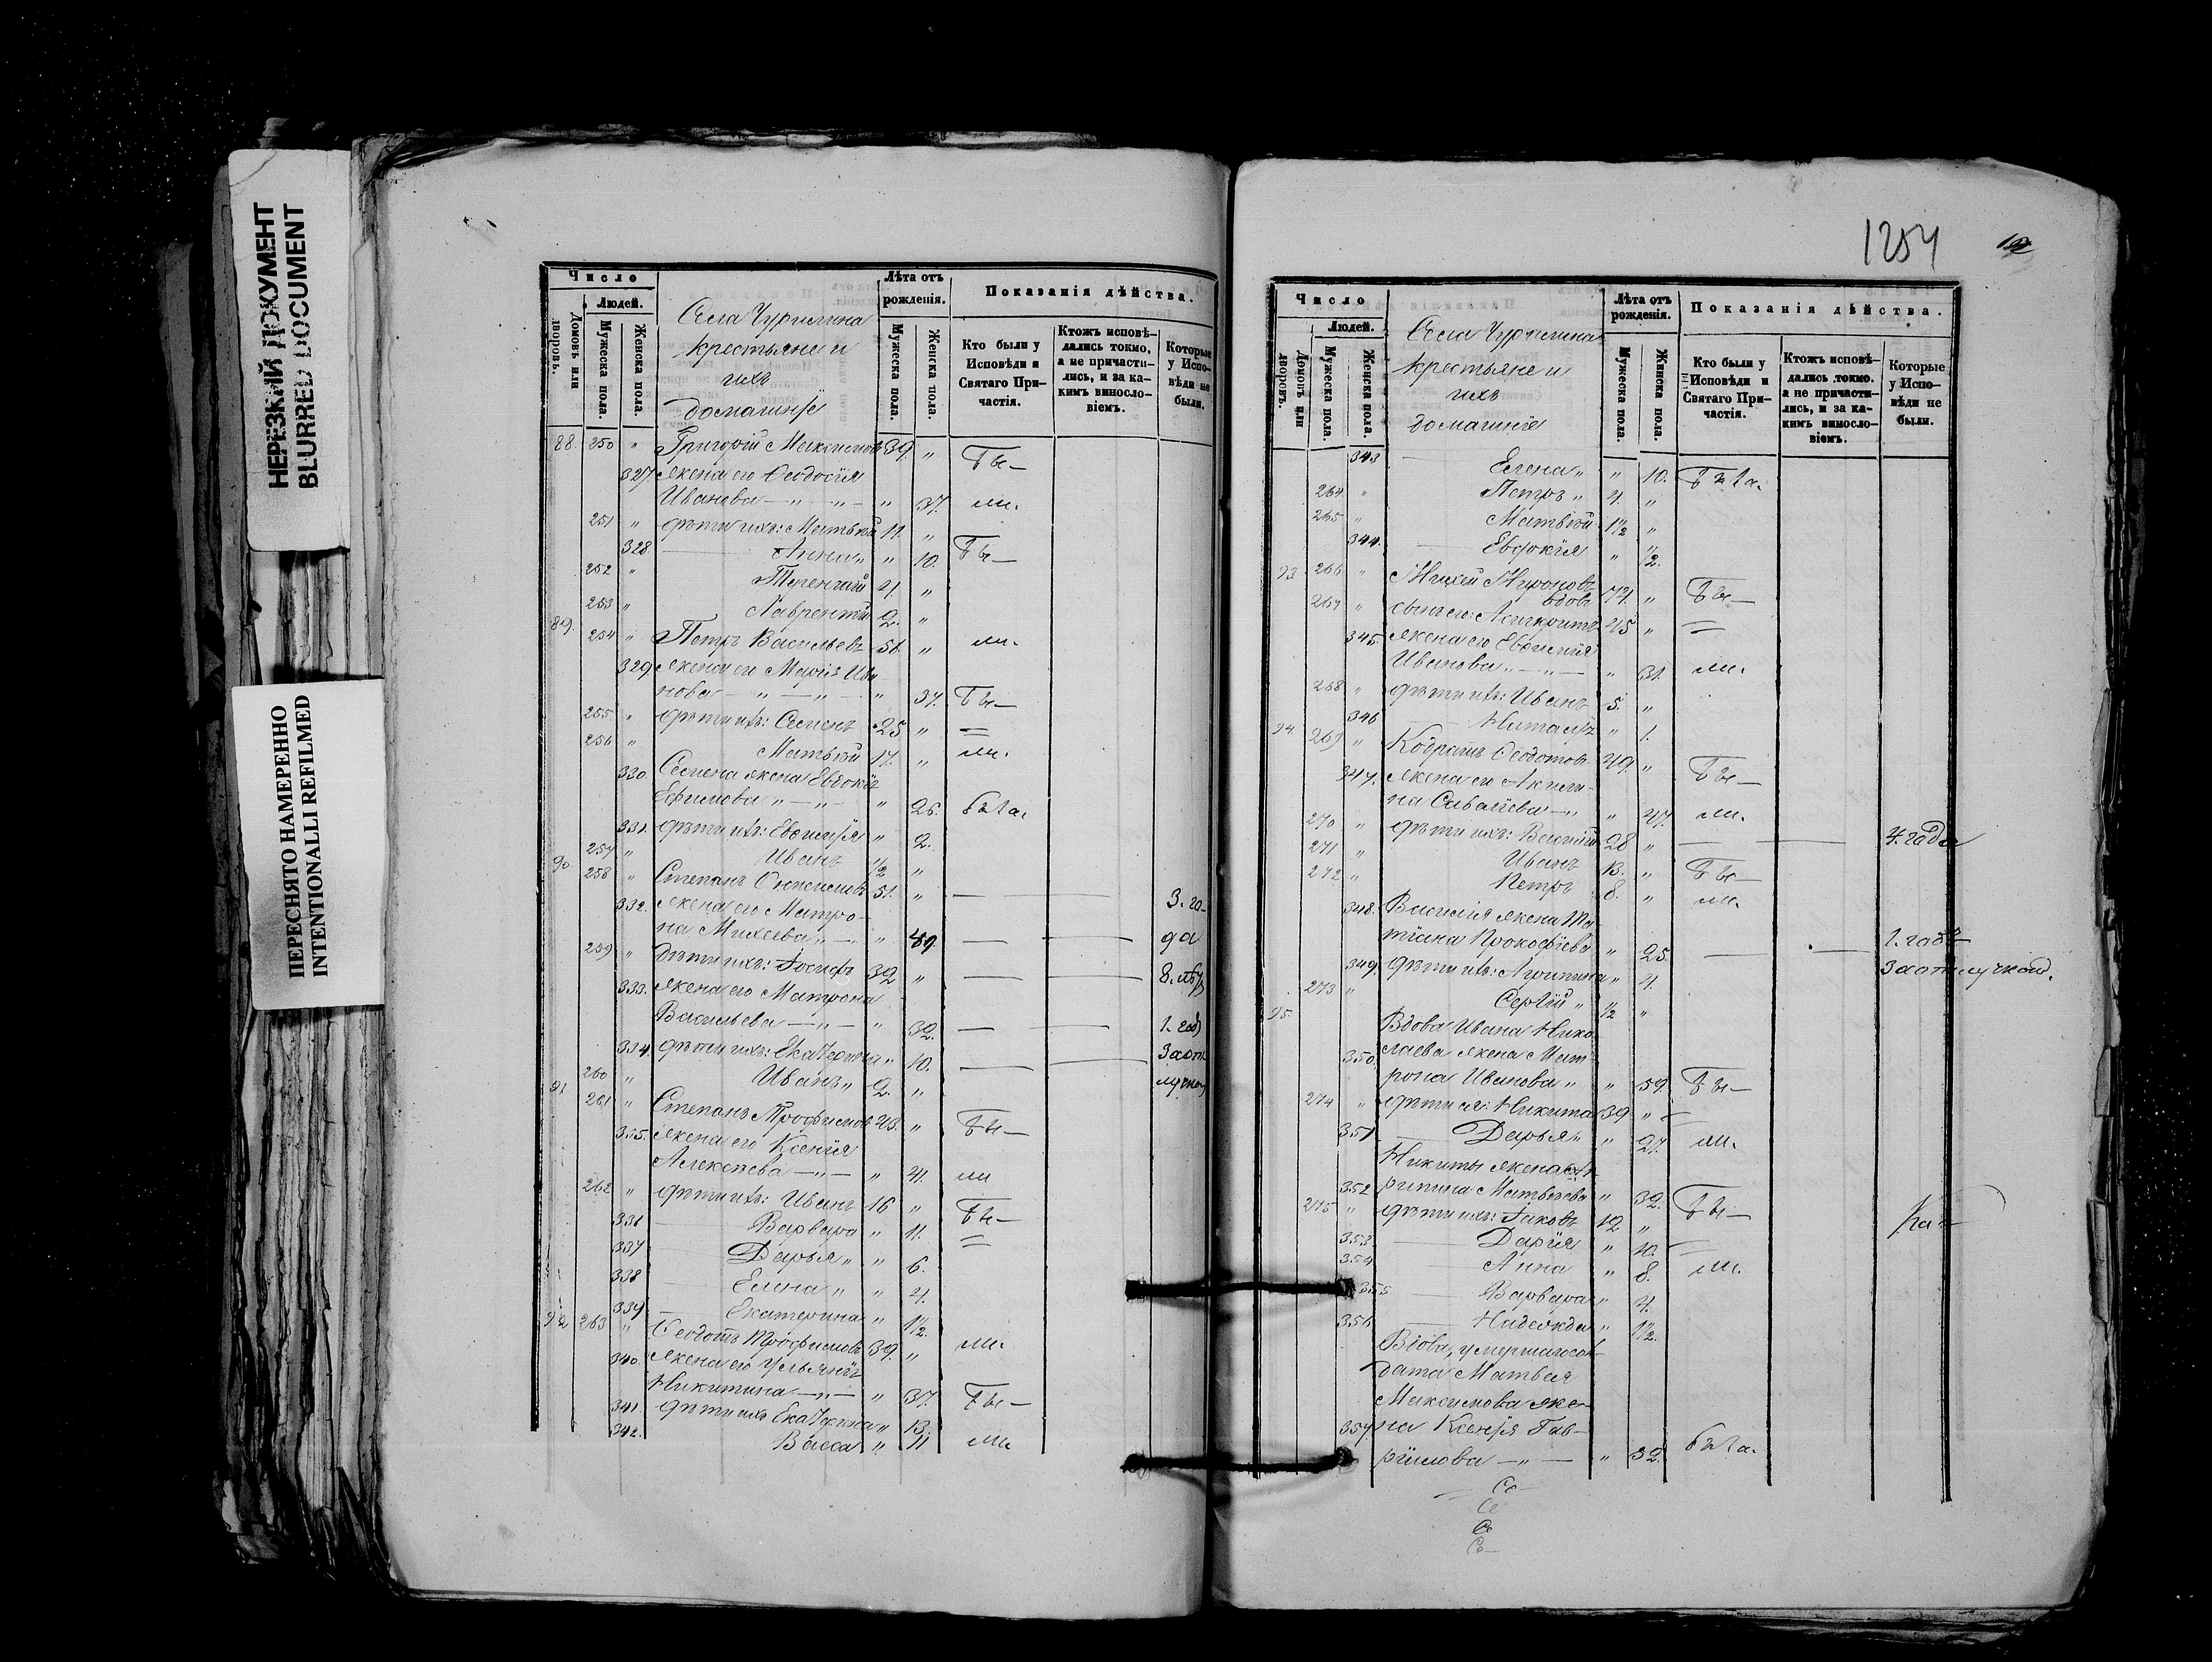 НЕРЕЗКИЙ ДОКУМЕНТ
BLURRED DOCUMENT
ПЕРЕСНЯТО НАМЕРЕННО
INTENTIONALLI REFILMED
Число
Людей.
Домовъ или дворовъ.
Мужеска пола.
Женска пола.
Села Чурилина
крестьяне и
ихъ
домашніе
Лѣта отъ рожденія.
Мужеска пола.
Женска пола.
Показанія дѣйства.
Кто были у Исповѣди и Святаго Причастія.
Ктожъ исповѣдались токмо, а не причастились, и за какимъ винословіемъ.
Которые у Исповѣди не были.
88. 250 " Григорій Максимовъ 39. " Бы-
327 жена его Ѳеодосія
Иванова — " — " — " 37. ли.
251 " дѣти ихъ: Матвѣй 11. "
328 Анна " " 10. Бы-
252 " Терентій 4. "
253 " Лаврентій 2. "
89. 254 " Петръ Васильевъ 51. " ли.
329 жена его Марія Ива-
нова — " — " — " 37. Бы-
255 " дѣти ихъ: Семенъ 25 " =
256 " Матвѣй 17. " ли.
330. Семена жена Евдокія
Ефимова " — " — " 26. была.
331. дѣти ихъ: Евфимія " 2.
257 " Иванъ 1/2 "
90. 258 " Степанъ Онисимовъ 51. " — — 3. го-
332. жена его Матро-
на Михеева " — " 49. — — да
259 " дѣти ихъ: Іосифъ 32 " — — 8. лѣтъ
333. жена его Матрона
Васильева — " — " 32. — — 1. годъ
334 дѣти ихъ: Екатерина " 10. — — За от-
260 " Иванъ " 2. " лучкою
91 261 " Степанъ Трофимовъ 43. " Бы-
335. жена его Ксенія
Алексѣева — " — " 41. ли
262 " дѣти ихъ: Иванъ 16 " Бы-
336 Варвара " 11. =
337 Дарья " " 6.
338 Елена " " 4.
339 Екатерина " 1 1/2.
92 263 " Ѳеодотъ Трофимовъ 39. " ли.
340. жена его Ульянія
Никитина — " — " 37. Бы-
341. дѣти ихъ Екатерина " 13.
342. Васса " " 11 ли
1254
Число
Людей.
Домовъ или дворовъ.
Мужеска пола.
Женска пола.
Села Чурилина
крестьяне и
ихъ
домашнія
Лѣта отъ рожденія.
Мужеска пола.
Женска пола.
Показанія дѣйства.
Кто были у Исповѣди и Святаго Причастія.
Ктожъ исповѣдались токмо, а не причастились, и за какимъ винословіемъ.
Которые у Исповѣди не были.
343 Елена " " 10. Была.
264 " Петръ " 4. "
265 " Матвѣй 1 1/2 "
344. Евдокія " 1/2.
93 266 " Михей Мироновъ
вдовъ 74. " Бы-
267 " сынъ его: Асигкритъ 45 " =
345. жена его Евфимія
Иванова " — " — " 31. ли.
268 " дѣти ихъ: Иванъ 5. "
346 Наталія " 1.
94 269 " Кодратъ Ѳеодотовъ 49. " Бы-
347. жена его Акили-
на Саватіева — " " 47. ли.
270 " дѣти ихъ: Василій 28 " — — 4. года
271 " Иванъ 13. " Бы-
272 " Петръ 8. " ли.
348. Василія жена Та-
тіана Прокофіева " 25. — — 1. годъ
349. дѣти ихъ: Агрипина " 4. За отлучкой.
273 " Сергій " 1/2 "
95. Вдова Ивана Нико-
лаева жена Мат-
350. рона Иванова " " 59. Бы-
274 " дѣти ея: Никита 39 " =
351 Дарья " " 27. ли.
Никиты жена Аг-
352 рипина Матвѣева " 32. Бы-
275 " дѣти ихъ: Іаковъ 12 "
353. Дарія " 10. =
354 Анна " 8. ли.
355 Варвара " 4.
356 Надежда " 1 1/2.
Вдова, умершаго сол-
дата Матвея
Максимова же-
357. на Ксенія Гав-
ріилова — " — " 32. была.
Се-
Се
Се
Се-